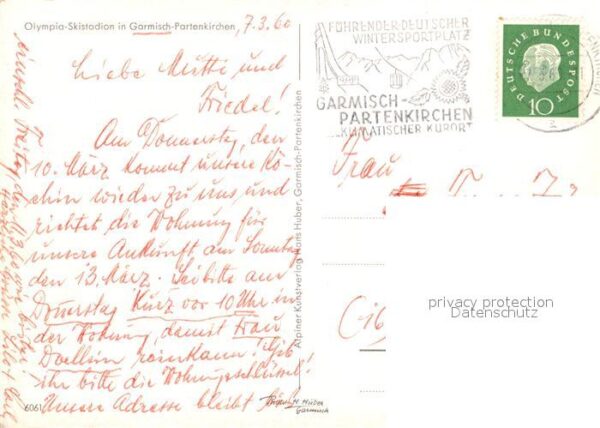 Olympia-Skistadion in Garmisch-Partenkirchen
7.3.60
Liebe Mutti und
Friedel!
Am Donnerstag, den
10. März kommt unsere Kö-
chin wieder zu uns und
richtet die Wohnung für
unsere Ankunft am Sonntag
den 13. März. Sei bitte am
Donnerstag kurz vor 10 Uhr in
der Wohnung, damit Frau
rein kann! Gib
ihr bitte die Wohnungsschlüssel!
Unsere Adresse bleibt
H. Huber
Garmisch
6061
Alpiner Kunstverlag Hans Huber, Garmisch-Partenkirchen
FÜHRENDER DEUTSCHER
WINTERSPORTPLATZ
GARMISCH-
PARTENKIRCHEN
KLIMATISCHER KURORT
DEUTSCHE BUNDESPOST
10
Frau
privacy protection
Datenschutz